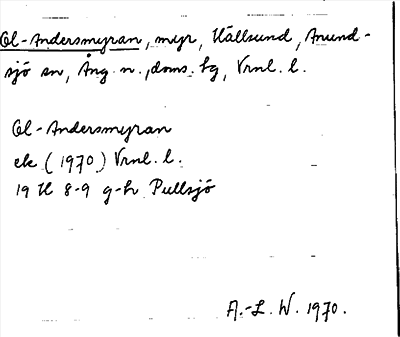 Ol-Andersmyran, myr, Hällsund, Anund-
sjö sn, Ång. n., doms. bg, Vrnl. l.
Ol-Andersmyran
ek (1970) Vrnl. l.
19 H 8-9 g-h Pullsjö
A.-L. W. 1970.